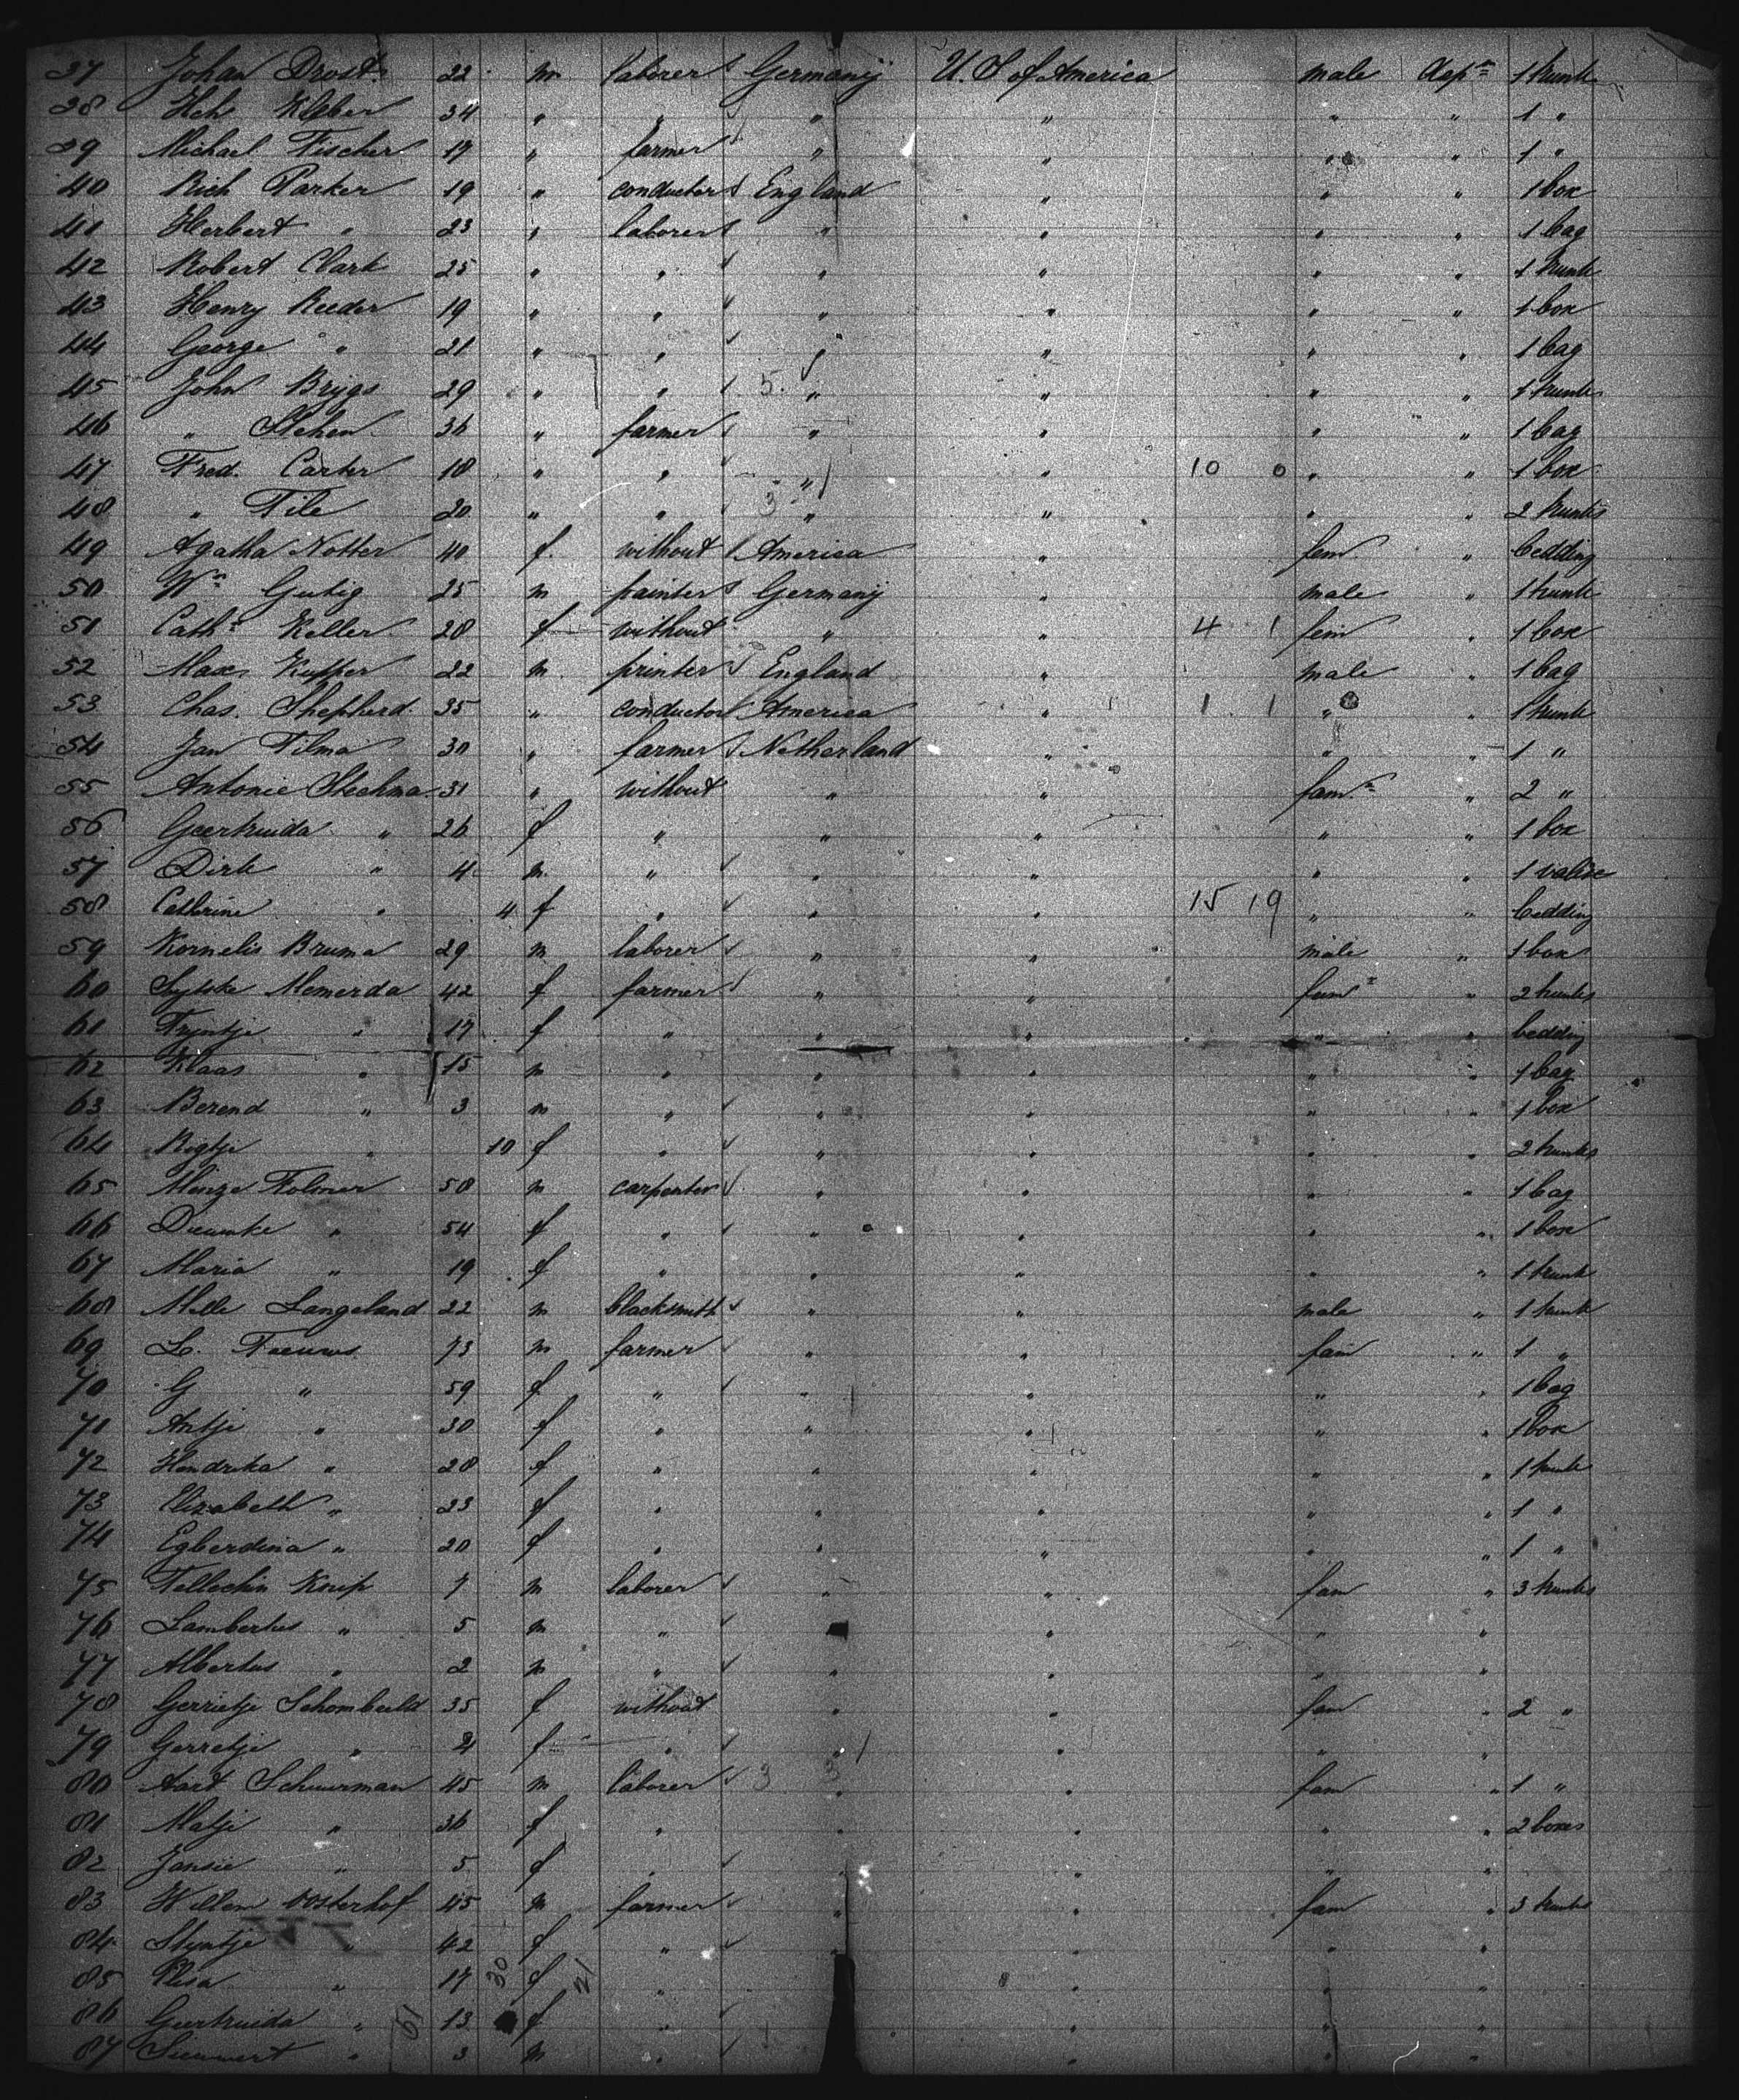 37 Johan Drost 22 m laborer Germany U. S of America male Aspn 1 trunk
38 Hch Kleber 34 " " " " " " 1 "
39 Michael Fischer 17 " farmer " " " " 1 "
40 Rich Parker 19 " conductor England " " " 1 box
41 Herbert " 23 " laborer " " " " 1 bag
42 Robert Clark 25 " " " " " " 1 trunk
43 Henry Reeder 19 " " " " " " 1 box
44 George " 21 " " " " " " 1 bag
45 John Briggs 29 " " 5. " " " " 1 trunk
46 " 36 " farmer " " " " 1 bag
47 Fred. Carter 18 " " " " 10 0 " " 1 box
48 " File 20 " " 3 " " " " 2 trunks
49 Agatha Notter 40 f. without America " fem " bedding
50 Wm Gutig 25 m painter Germany " male " 1 trunk
51 Cath. Keller 28 f without " " 4 1 fem " 1 box
52 Max 22 m. printer England " male " 1 bag
53 Chas. Shepherd 35 " conductor America " 1 1 " " 1 trunk
54 Jan Tilma 30 " farmer Netherland " " " 1 "
55 Antonie Stechma 31 " without " " fam. " 2 "
56 Geertruida " 26 f " " " " " 1 box
57 Dirk " 4 m. " " " " " 1 valise
58 Cathrine " 4 f " " " 15 19 " " bedding
59 Kornelis Bruma 29 m laborer " " male " 1 box
60 Sytske Memerda 42 f farmer " " fam " 2 trunks
61 Tryntje " 17 f " " " " " bedding
62 Klaas " 15 m " " " " " 1 bag
63 Berend " 3 m " " " " " 1 box
64 " 10 f " " " " " 2 trunks
65 Menze Folmer 58 m carpenter " " " " 1 bag
66 " 54 f " " " " " 1 box
67 Maria " 19 f " " " " " 1 trunk
68 Melle Langeland 22 m blacksmith " " male " 1 trunk
69 L. Teeuws 73 m farmer " " fam " 1 "
70 G " 59 f " " " " " 1 bag
71 Antje " 30 f " " " " " 1 box
72 Hendrika " 28 f " " " " " 1 trunk
73 Elizabeth " 23 f " " " " " 1 "
74 Egberdina " 20 f " " " " " 1 "
75 Knip 7 m laborer " " fam " 3 trunks
76 Lambertus " 5 m " " " "
77 Albertus " 2 m " " " " "
78 Gerrietje Schombeeld 35 f without " " fam " 2 "
79 Gerretje " f " " " " "
80 Aart Schuurman 45 m laborer 3 3 " " fam " 1 "
81 Matje " 36 f " " " " " 2 boxes
82 Jansie " 5 f " " " " "
83 Willem Oosterhof 45 m farmer " " fam " 3 trunks
84 Styntje " 42 f " " " " "
85 Elsa " 17 30 f 21 " " " "
86 Geertruida " 61 13 f " " " "
87 Sieuwert " 3 m " " " "